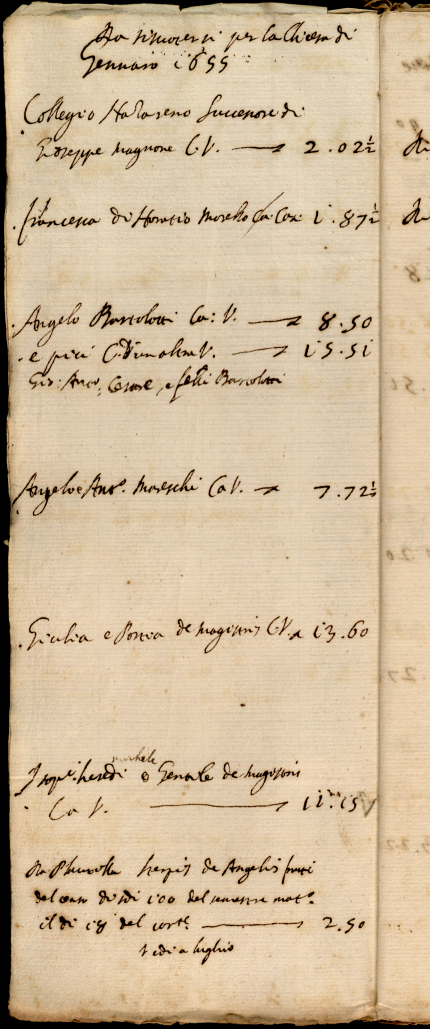 Da riscotersi per la Chiesa di
Gennaro 1655
Collegio Nazareno Successore di
Giuseppe Magnone C.V. 2.02½
Francesca di Horatio Morello Ca Con 1.87½
Angelo Bartolotti Ca: V. 8.50
e piu C. V. 15.51
Gio: Anto. Cesare, e felli Bartolotti
Angelo e Anto. Moreschi Ca V. 7.72½
Giulia e Portia de Magistris C.V. a 13.60
michele
heredi o Gentile de Magistris
Ca V. 11.15
heredis de Angelis frutti
del censo di sdi 100 del semestre mato.
il di 18 del corte. 2.50
vedi a luglio